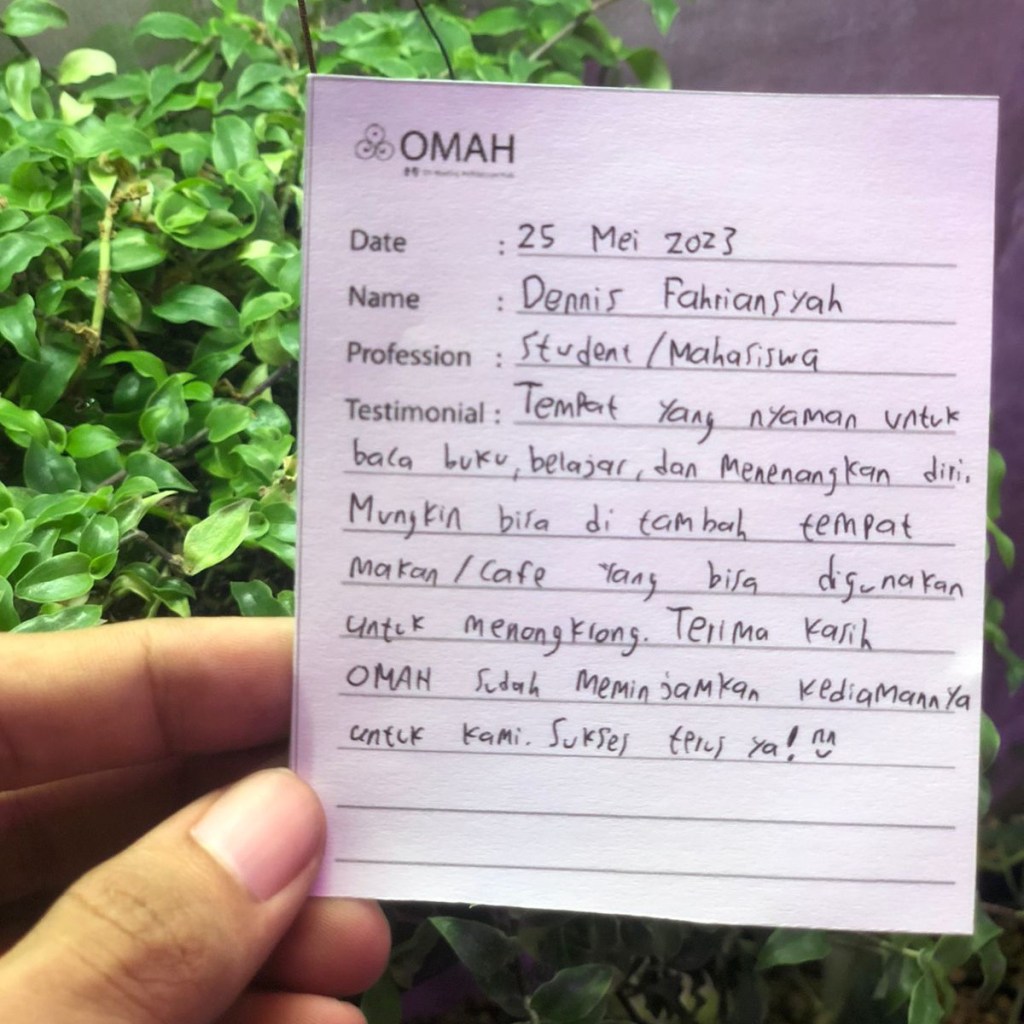 OMAH
Date : 25 Mei 2023
Name : Dennis Fahriansyah
Profession : Student/Mahasiswa
Testimonial : Tempat yang nyaman untuk
baca buku, belajar, dan menenangkan diri.
Mungkin bisa di tambah tempat
makan/cafe yang bisa digunakan
untuk menongkrong. Terima kasih
OMAH sudah meminjamkan kediamannya
untuk kami. Sukses terus ya!